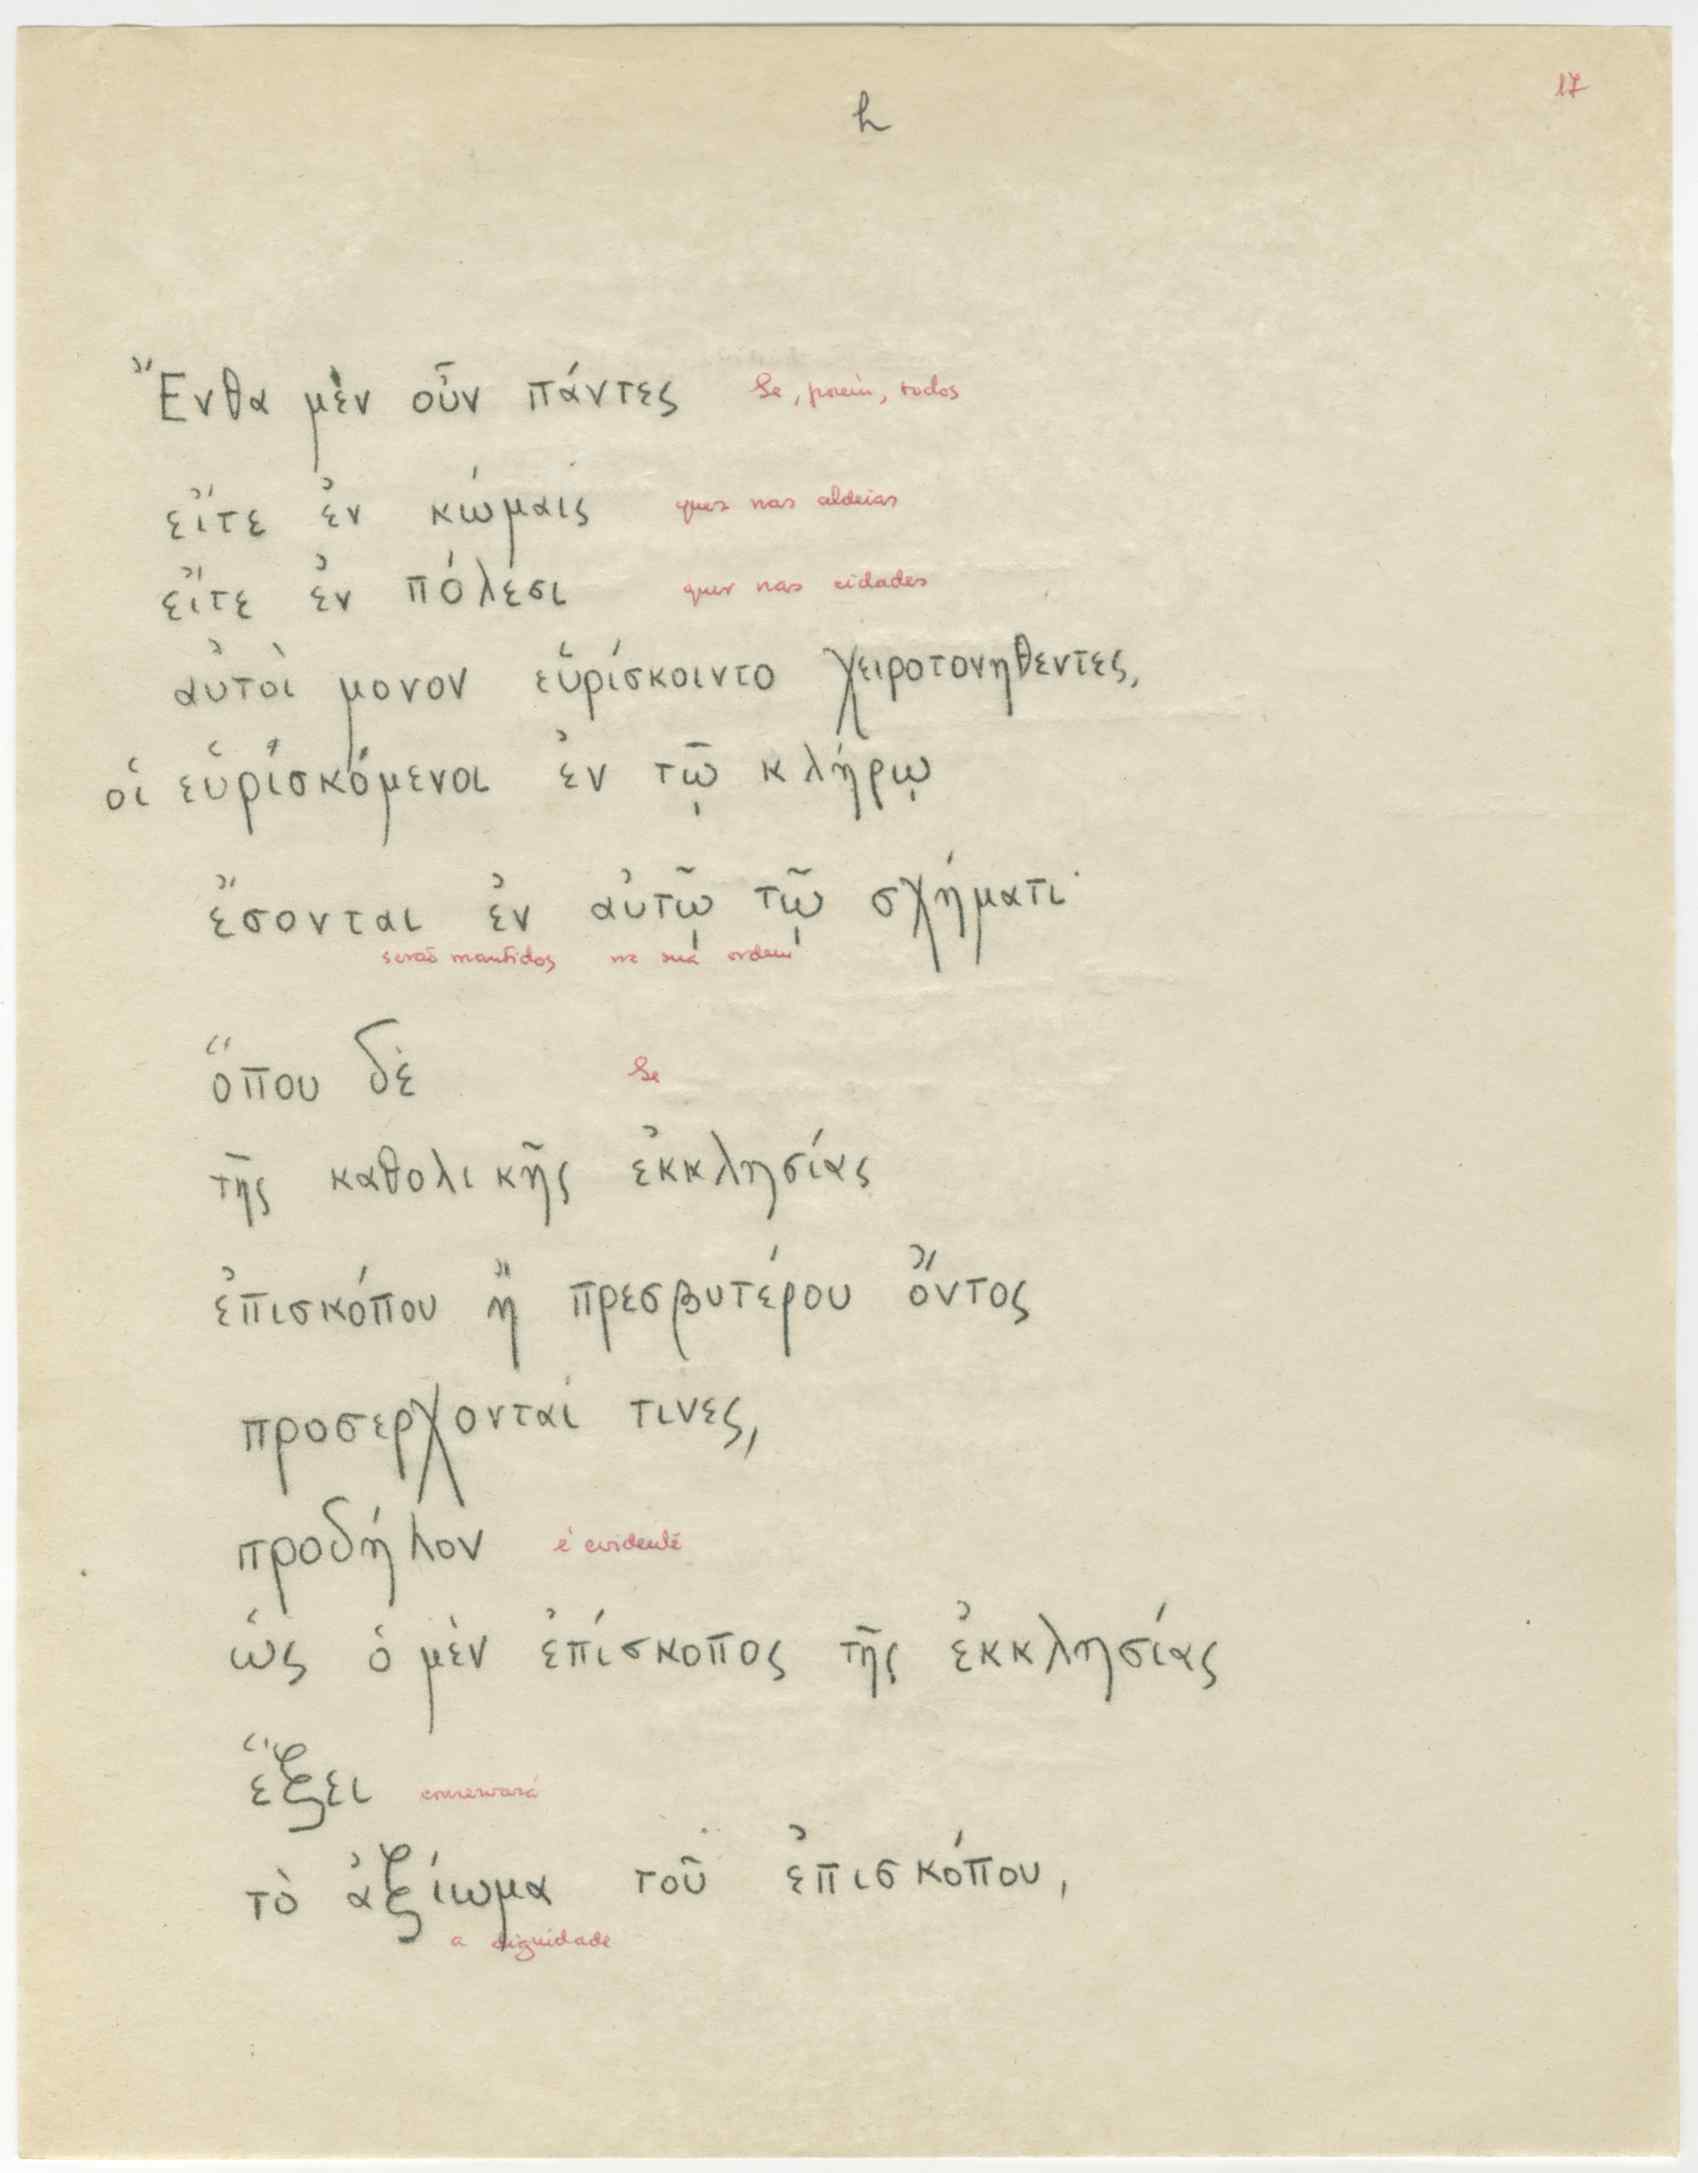 17
h
Ἔνθα μὲν οὖν πάντες Se, porém, todos
εἴτε ἐν κώμαις quer nas aldeias
εἴτε ἐν πόλεσι quer nas cidades
αὐτοὶ μονον εὑρίσκοιντο χειροτονηθεντες,
οἱ εὑρίσκόμενοι ἐν τῷ κλήρῳ
ἔσονται ἐν αὐτῷ τῷ σχήματι·
serão mantidos na sua ordem
ὅπου δὲ Se
τῆς καθολικῆς ἐκκλησίας
ἐπισκόπου ἢ πρεσβυτέρου ὄντος
προσερχονταί τινες,
προδήλον é evidente
ὡς ὁ μὲν ἐπίσκοπος τῆς ἐκκλησίας
ἕξει conservará
τὸ ἀξίωμα τοῦ ἐπισκόπου,
a dignidade